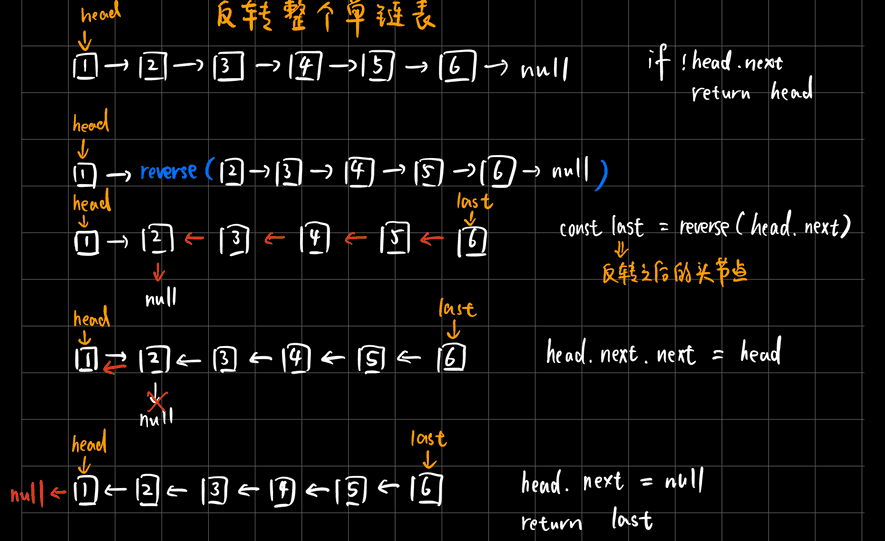 反转整个单链表
head
↓
1 → 2 → 3 → 4 → 5 → 6 → null
if !head.next
return head
head
↓
1 → reverse ( 2 → 3 → 4 → 5 → 6 → null )
head
↓
last
↓
1 → 2 ← 3 ← 4 ← 5 ← 6
↓
null
const last = reverse(head.next)
⇓
反转之后的头节点
head
↓
last
↓
1 → ← 2 ← 3 ← 4 ← 5 ← 6
↓
null
head.next.next = head
head
↓
last
↓
null ← 1 ← 2 ← 3 ← 4 ← 5 ← 6
head. next = null
return last